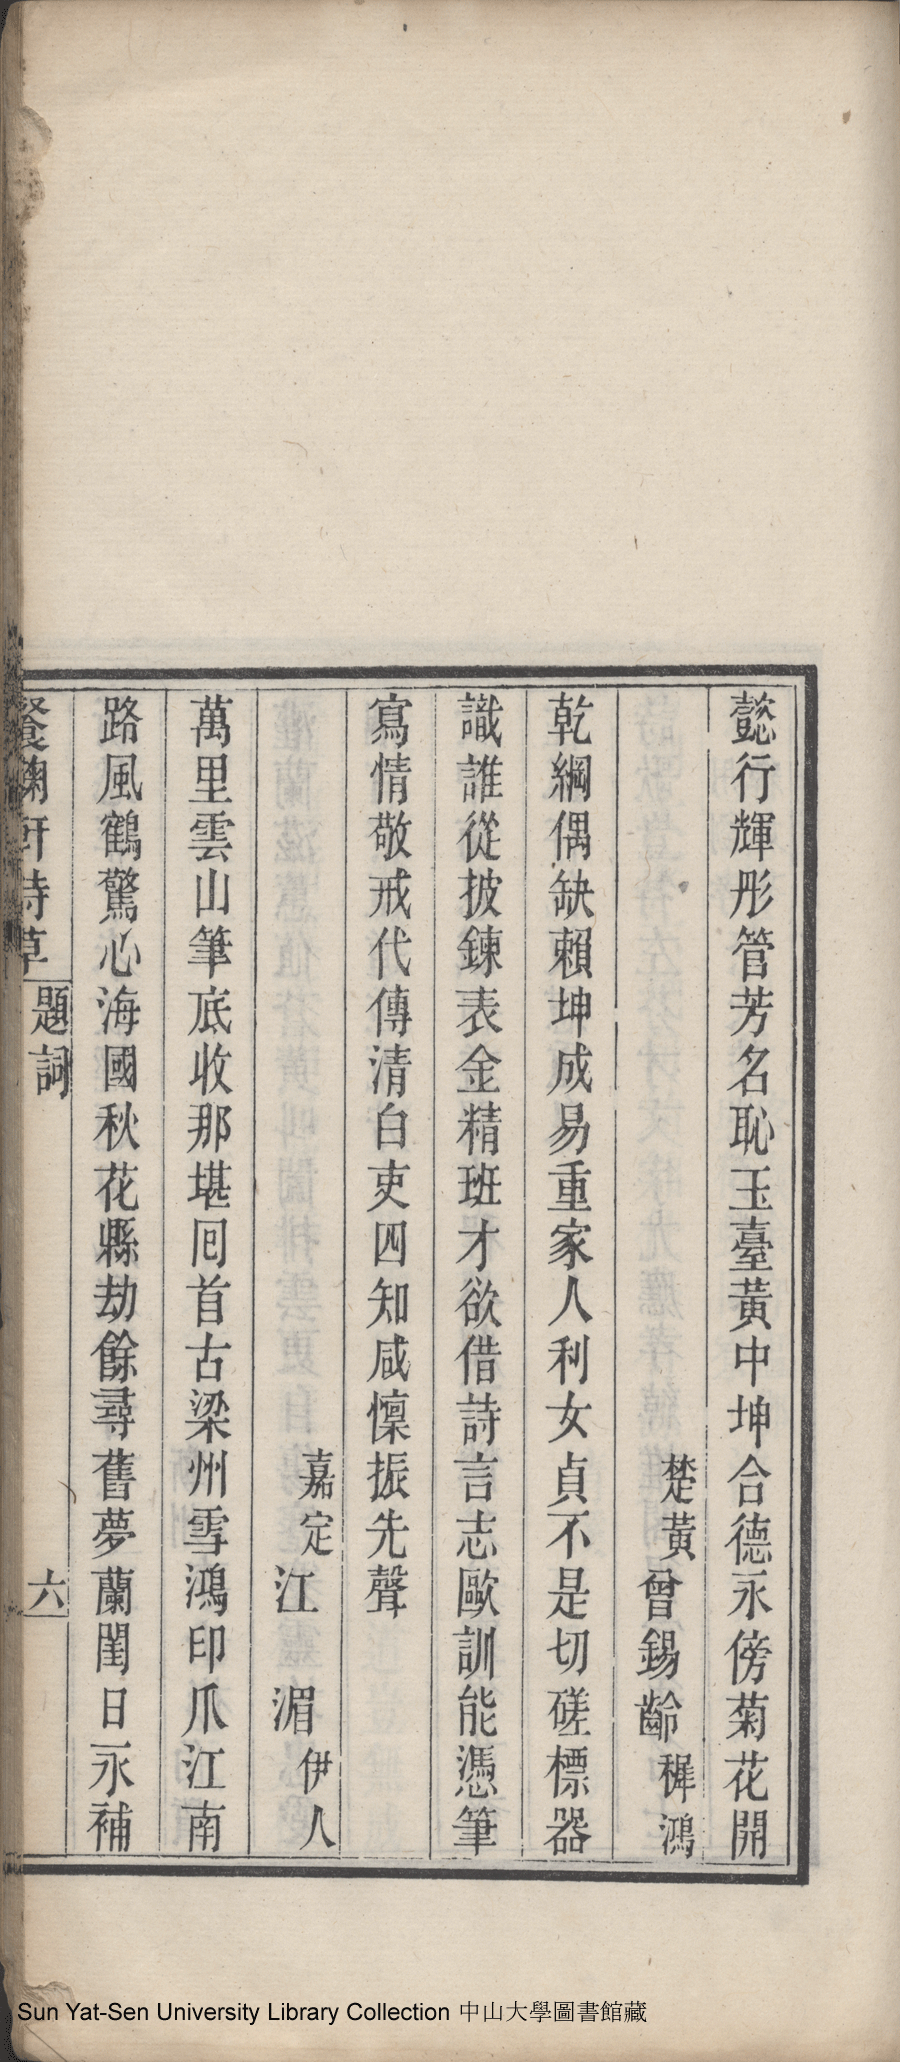 懿行輝彤管芳名恥玉臺黃中坤合德永傍菊花開
楚黃曾錫齡穉鴻
乾綱偶缺賴坤成易重家人利女貞不是切磋標器
識誰從披鍊表金精班才欲借詩言志歐訓能憑筆
寫情敬戒代傳清白吏四知咸懍振先聲
嘉定江湄伊人
萬里雲山筆底收那堪囘首古梁州雪鴻印爪江南
路風鶴驚心海國秋花縣劫餘尋舊夢蘭閨日永補
餐菊軒詩草 題詞 六
Sun Yat-Sen University Library Collection 中山大學圖書館藏